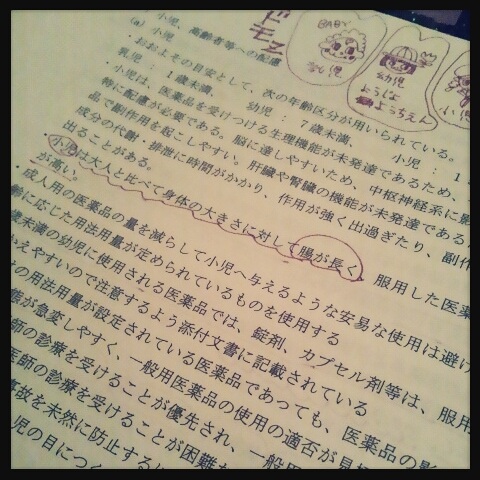 ドモZ
BABY
乳児
幼児
ようじは
ようちえん
小児
小児、高齢者等への配慮
(a) 小児
・おおよその目安として、次の年齢区分が用いられている。
乳児：1歳未満、 幼児：7歳未満、 小児：1
・小児は、医薬品を受けつける生理機能が未発達であるため、
特に配慮が必要である。脳に達しやすいため、中枢神経系に影
品で副作用を起こしやすい。肝臓や腎臓の機能が未発達である
成分の代謝・排泄に時間がかかり、作用が強く出過ぎたり、副作
出ることがある。
小児は大人と比べて身体の大きさに対して腸が長く、服用した医薬
が高い。
・成人用の医薬品の量を減らして小児へ与えるような安易な使用は避け
齢に応じた用法用量が定められているものを使用する
歳未満の幼児に使用される医薬品では、錠剤、カプセル剤等は、服用
かえやすいので注意するよう添付文書に記載されている
の用法用量が設定されている医薬品であっても、医薬品の影
態が急変しやすく、一般用医薬品の使用の適否が見
師の診療を受けることが優先され、一般用
医師の診療を受けることが困難
事故を未然に防止する
児の目につく